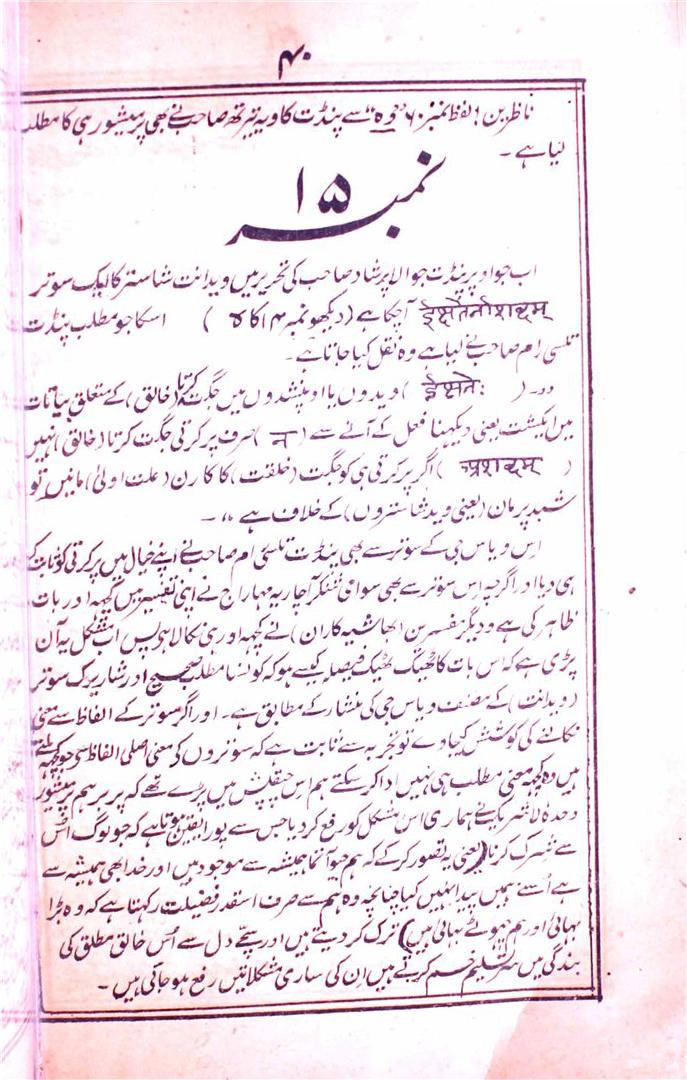 ۴۰
ناظرین! لفظ نمبر ۶۰ "وہ" سے پنڈت کاویہ تیرتھ صاحب نے بھی پرمیشور ہی کا مطلب
لیا ہے۔
نمبر ۱۵
اب جو اوپر پنڈت جوالا پرشاد صاحب کی تحریر میں ویدانت شاستر کا ایک سوتر
ईक्षतेर्नाशब्दम् آچکا ہے (دیکھو نمبر ۱۴ کا ۵) اسکا جو مطلب پنڈت
تلسی رام صاحب نے لیا ہے وہ نقل کیا جاتا ہے۔
"۔ (ईक्षतेः) ویدوں یا اوپنشدوں میں جگت کرتا (خالق) کے متعلق بیانات
میں ایکشت یعنی دیکھنا فعل کے آنے سے (न) صرف پرکرتی جگت کرتا (خالق) نہیں
(अशब्दम्) اگر پرکرتی ہی کو جگت (خلقت) کا کارن (علت اولیٰ) مانیں تو
شبد پرمان (یعنی وید شاستروں) کے خلاف ہے"۔
اس ویاس جی کے سوتر سے بھی پنڈت تلسی رام صاحب نے اپنے خیال میں پرکرتی کو ثابت کر
ہی دیا اور اگرچہ اس سوتر سے بھی سوامی شنکر آچاریہ مہاراج نے اپنی تفسیر میں کچھہ اور بات
ظاہر کی ہے و دیگر مفسرین (بھاشیہ کاران) نے کچھہ اور ہی نکالا ہی پس اب مشکل یہ آن
پڑی ہے کہ اس بات کا ٹھیک ٹھیک فیصلہ کیسے ہو کہ کونسا مطلب صحیح اور شاریرک سوتر
(ویدانت) کے مصنف ویاس جی کی منشار کے مطابق ہے۔ اور اگر سوتر کے الفاظ سے معنی
نکالنے کی کوشش کیجاوے تو تجربہ سے ثابت ہے کہ سوتروں کے معنی اصلی الفاظ سی جو کچھہ
ہیں وہ کچھہ معنی مطلب ہی نہیں ادا کر سکتے ہم اس چپقلش میں پڑے تھے کہ پر برہم پرمیشور
وحدہٗ لا شریک نے ہماری اس مشکل کو رفع کر دیا جس سے پورا یقین ہوتا ہے کہ جو لوگ اُس
سے شرک کرنا (یعنی یہ تصور کر کے کہ ہم جیو آتما ہمیشہ سے موجود ہیں اور خدا بھی ہمیشہ سے
ہے اُسنے ہمیں پیدا نہیں کیا چنانچہ وہ ہم سے صرف اسقدر فضیلت رکہتا ہے کہ وہ بڑا
بہائی اور ہم چہوٹے بہائی ہیں) ترک کر دیتے ہیں اور سچے دل سے اُس خالق مطلق کی
بندگی میں سر تسلیم خم کرتے ہیں اِن کی ساری مشکلاتیں رفع ہو جاتی ہیں۔